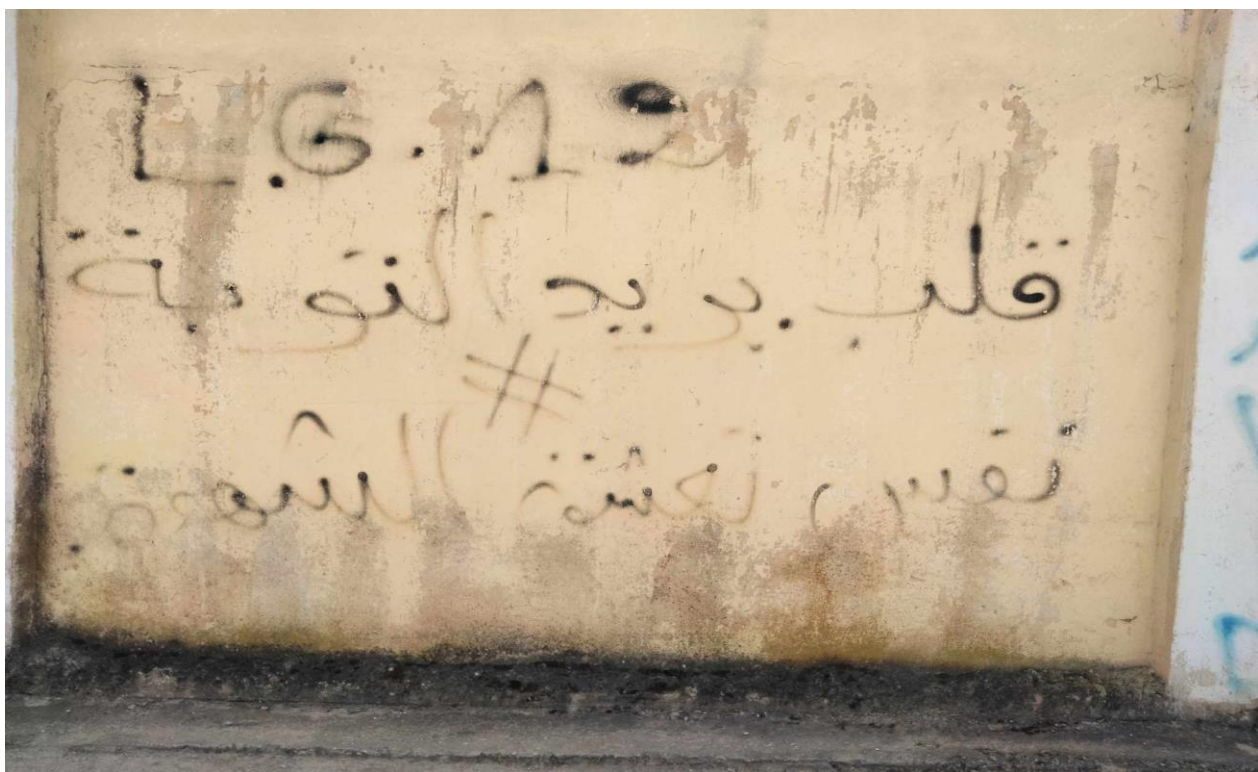 L.G.N2
قلب يريد التوبة
#
نفس تعشق الشهوة